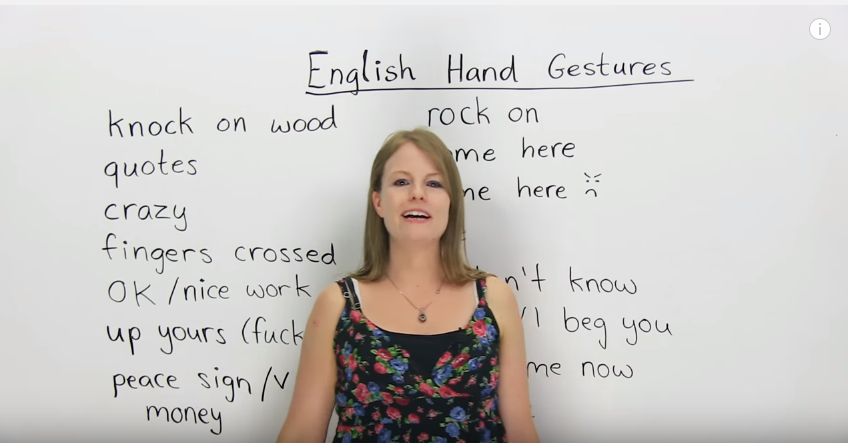 English Hand Gestures
knock on wood
quotes
crazy
fingers crossed
OK/nice work
up yours (fuck
peace sign/V
money
rock on
me here
me here
n't know
/I beg you
me now